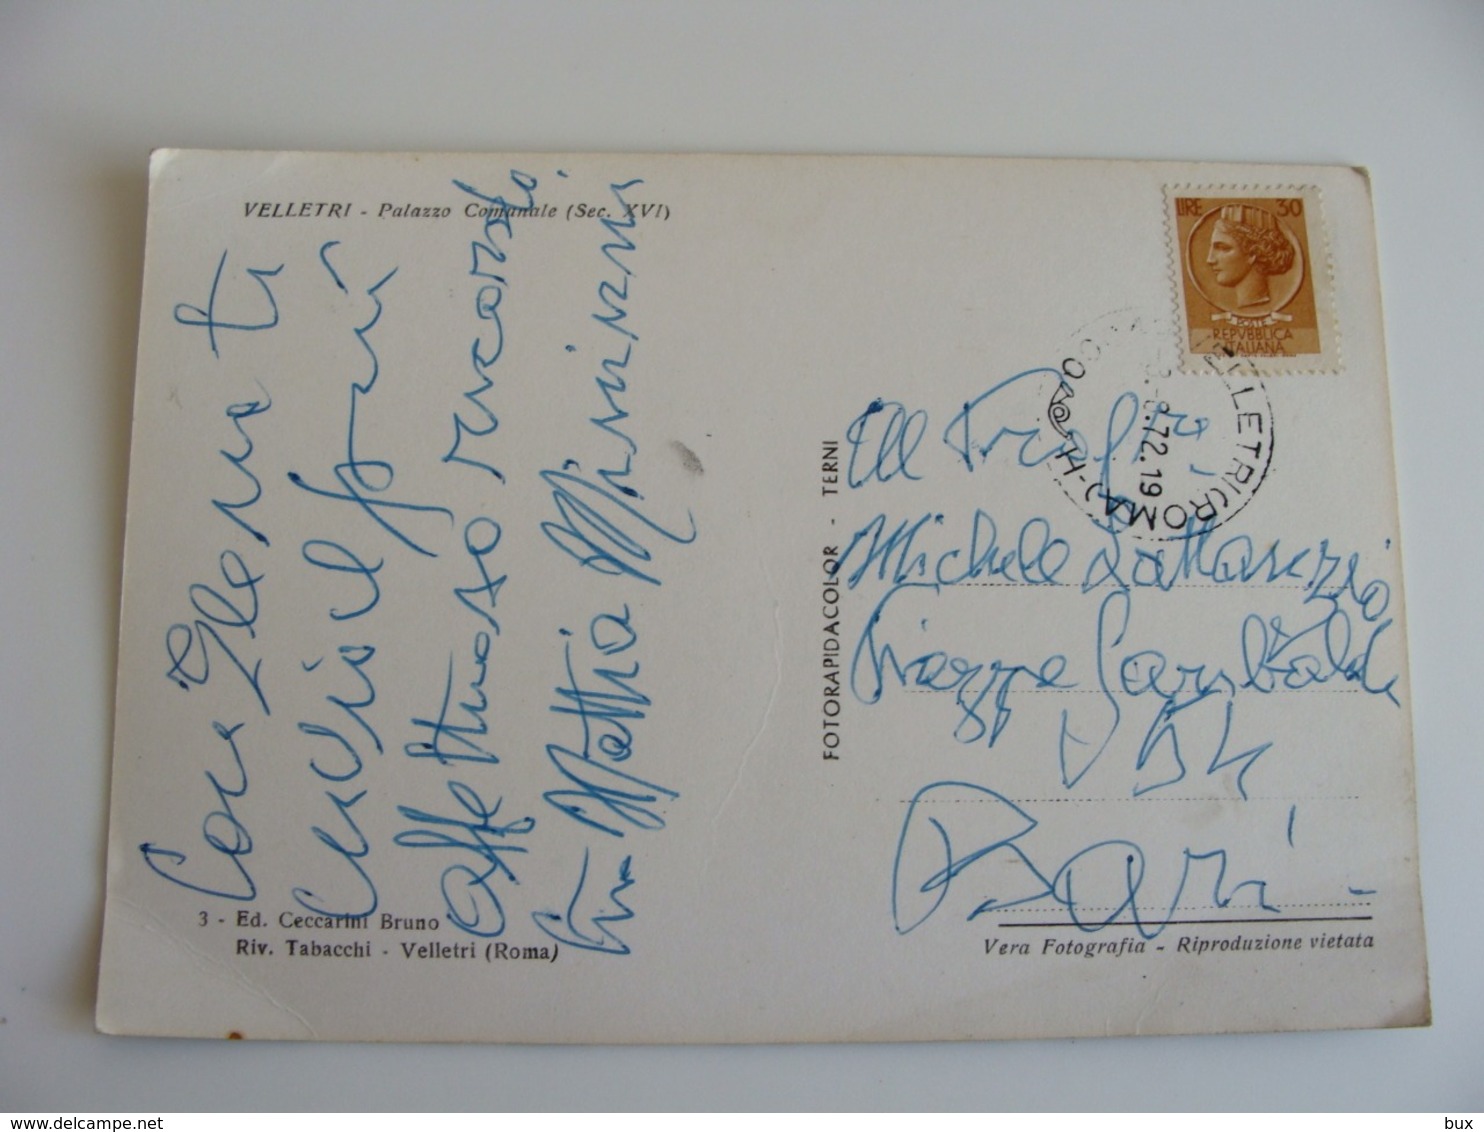 VELLETRI - Palazzo Comunale (Sec. XVI)
ti
il più
affettuoso ricordo.
Mattia Minimi
3 - Ed. Ceccarini Bruno
Riv. Tabacchi - Velletri (Roma)
FOTORAPIDACOLOR - TERNI
LIRE 30
POSTE
REPVBBLICA
ITALIANA
VELLETRI (ROMA)
8.72.19
Michele Lattaruzio
Piazza Garibaldi
54
Bari
Vera Fotografia - Riproduzione vietata
bux